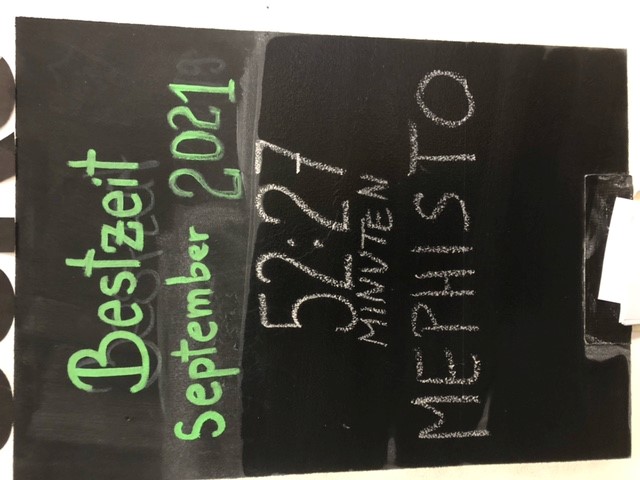 Bestzeit
September 2021
52:27
MINUTEN
MEPHISTO